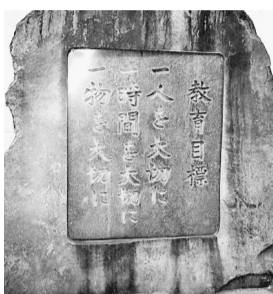 教育目標
一人を大切に
一時間を大切に
一物を大切に